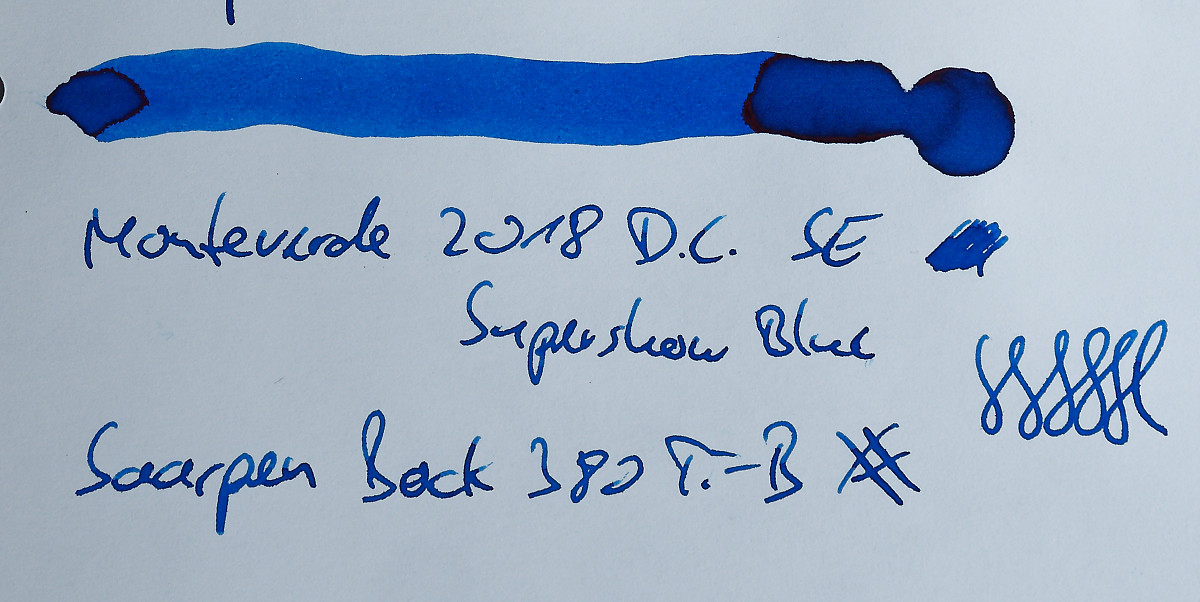 Monteverde 2018 D.C. SE
Supershow Blue
Saarpen Bock 380 T.-B